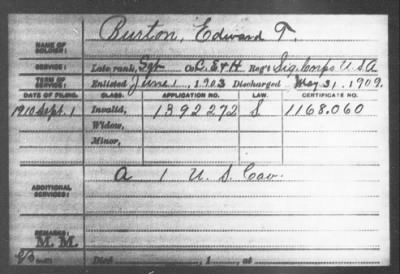 NAME OF SOLDIER: Burton, Edward T.
SERVICE: Late rank, Sgt Co. C. E & H Reg't Sig. Corps U.S.A
TERM OF SERVICE: Enlisted June 1, 1903 Discharged May 31, 1909.
DATE OF FILING. CLASS. APPLICATION NO. LAW. CERTIFICATE NO.
1910 Sept. 1 Invalid, 1392272 S 1168.060
Widow,
Minor,
ADDITIONAL SERVICES: A 1 U.S. Cav.
REMARKS:
M. M.
Died , 1 , at